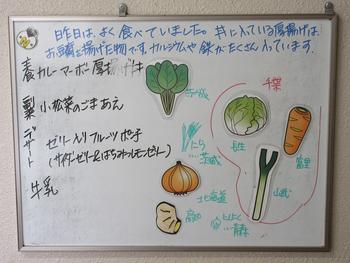 昨日は、よく食べていました。丼に入っている厚揚げは、
お豆腐を揚げた物です。カルシウムや鉄がたくさん入っています。
カレーマーボー厚揚げ丼
副菜 小松菜のごまあえ
デザート ゼリー入りフルーツポンチ
(サイダーゼリー&はちみつレモンゼリー)
牛乳
千葉
茨城
にら
茨城
長生
富里
北海道
山武
高知
にんにく
青森